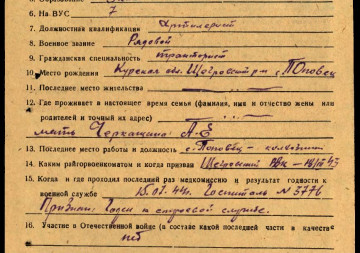 6. На ВУС 7
7. Должностная квалификация
8. Военное звание Рядовой
9. Гражданская специальность тракторист
10. Место рождения Курская обл. р-н с. Поповец
11. Последнее место жительства
12. Где проживает в настоящее время семья (фамилия, имя и отчество жены или
родителей и точный их адрес)
мать А-Е
13. Последнее место работы и должность с. Поповец - колхозник
14. Каким райгорвоенкоматом и когда призван РВК 43
15. Когда и где проходил последний раз медкомиссию и результат годности к
военной службе 15.07.44г. Госпиталь N 3776
Признан: Годен к строевой службе.
16. Участие в Отечественной войне (в составе какой последней части и качестве
нет